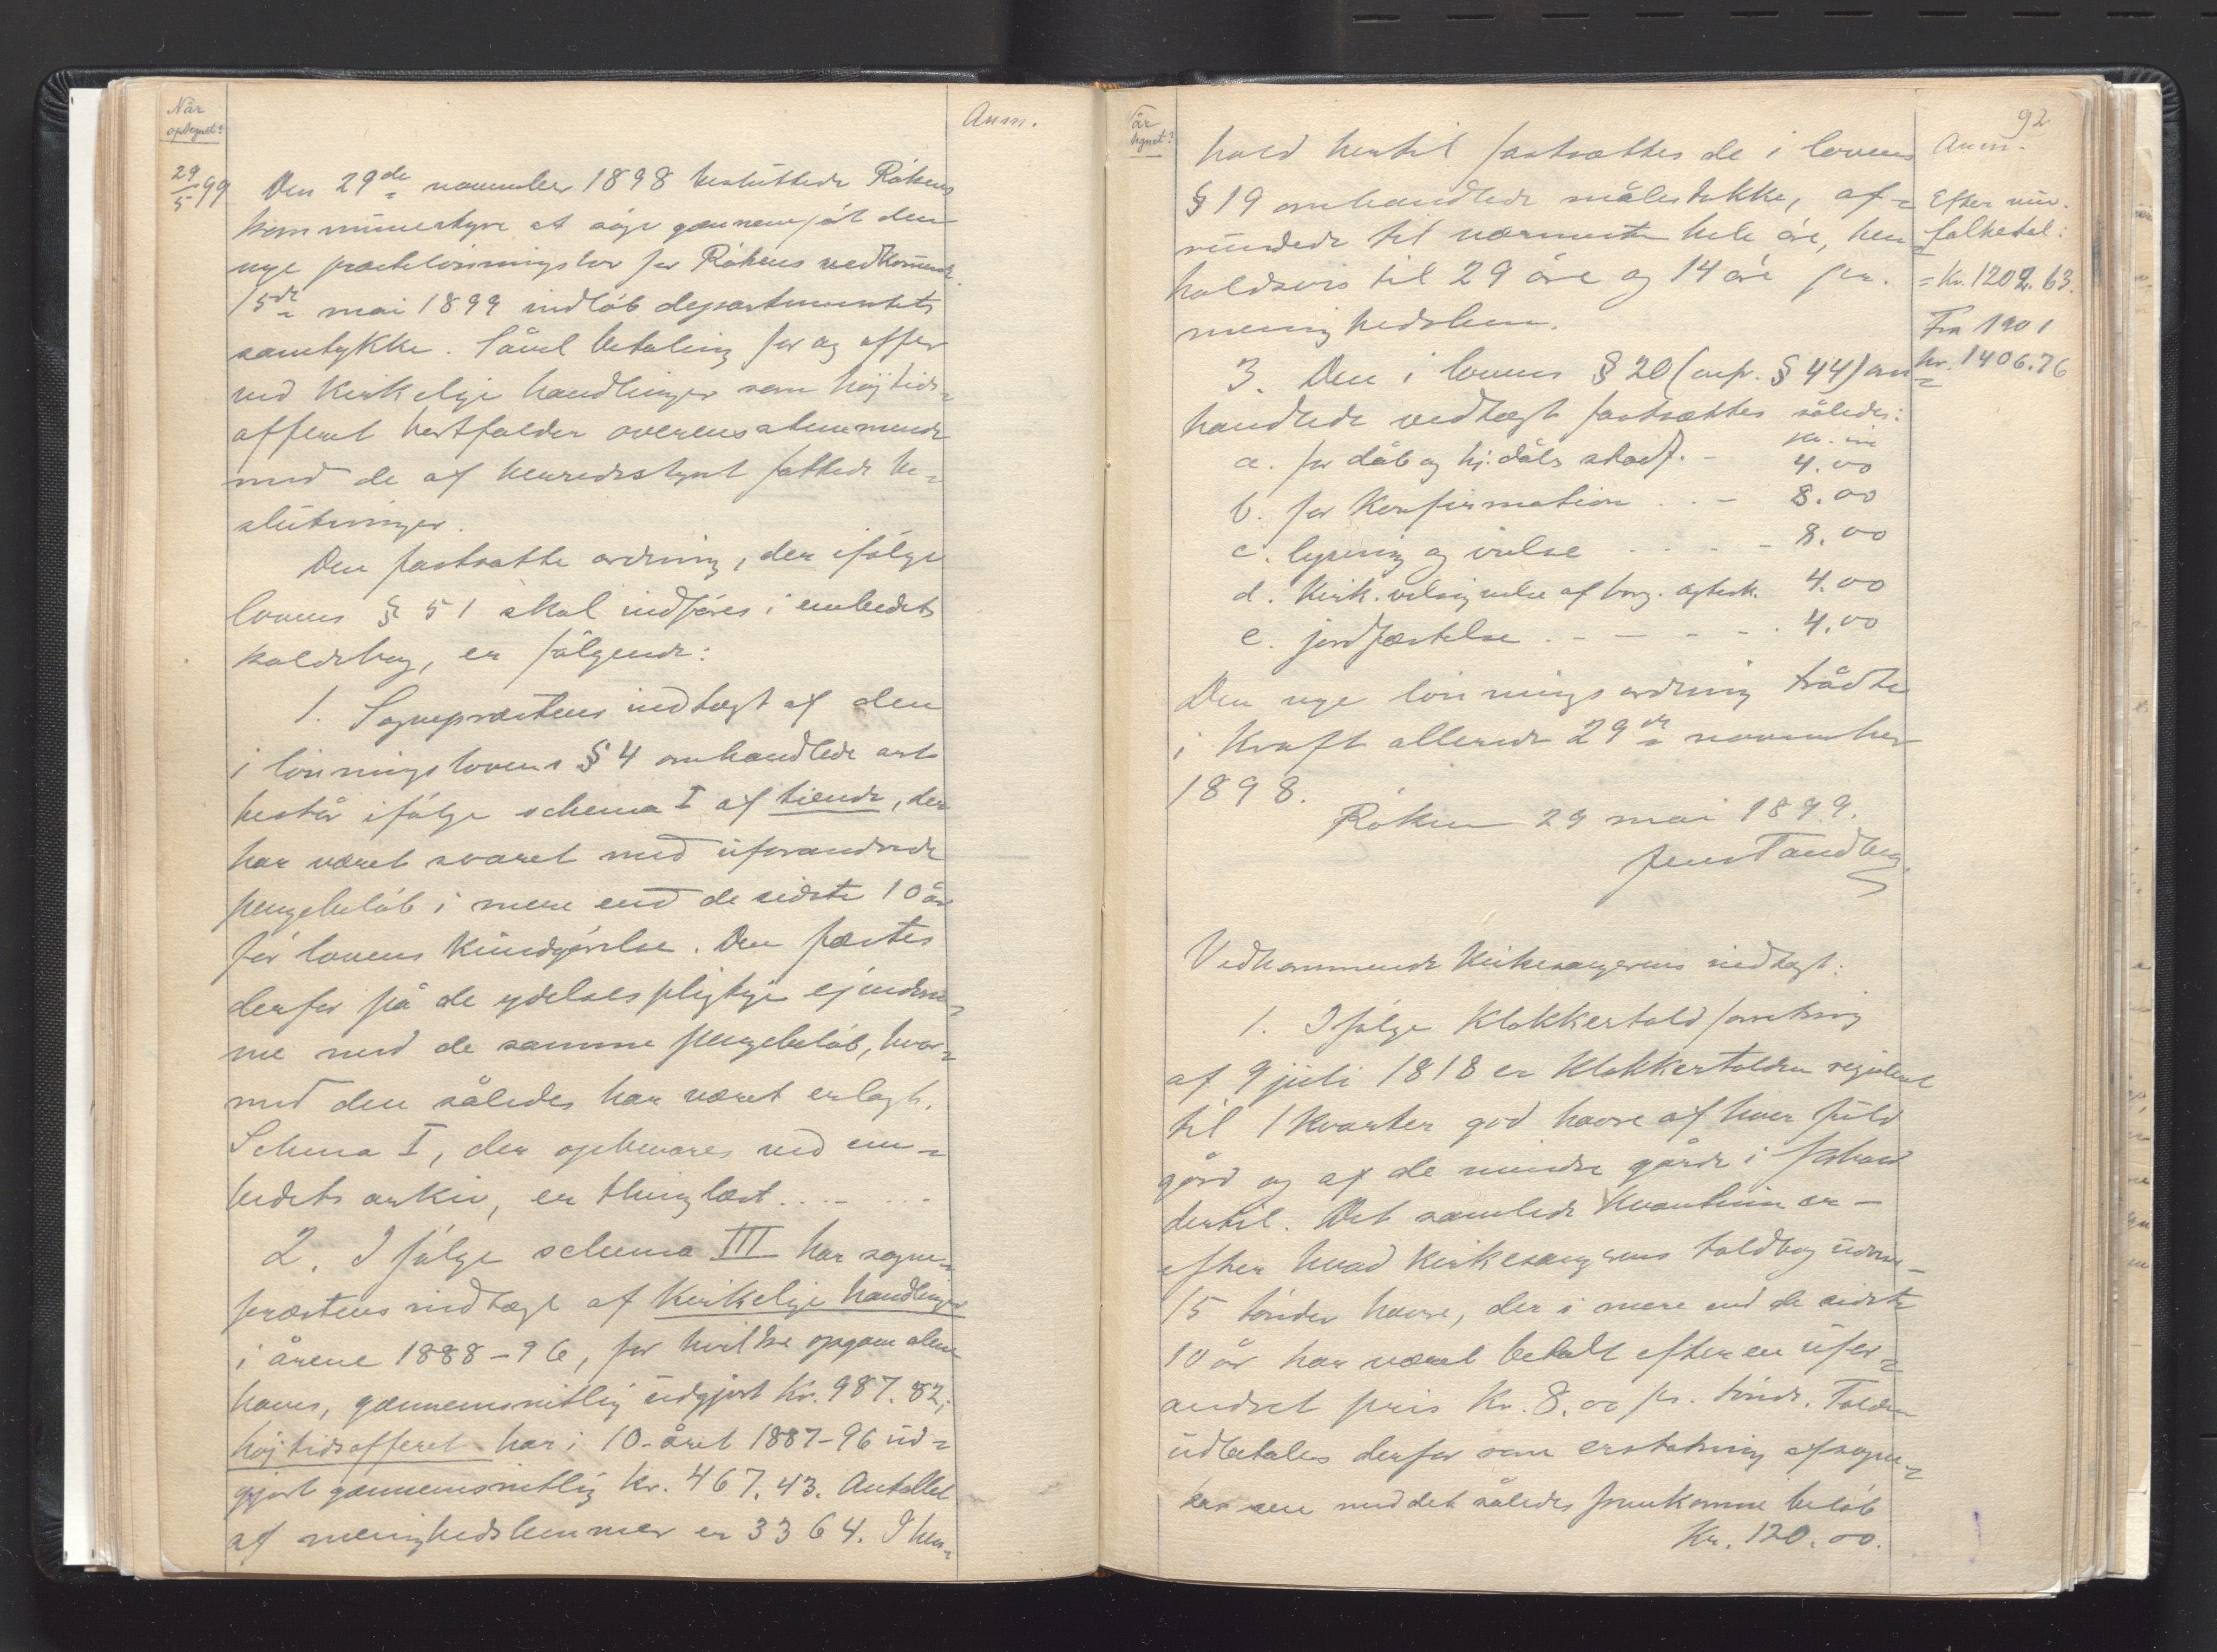 Når
optegnet?
Anm.
29/5 99
Den 29de november 1898 besluttede Rökens
kommunestyre at söge gennemfört den
nye prestelönningslov for Rökens vedkommende.
15de mai 1899 indlöb departementets
samtykke. Såvel betaling for og offer
ved kirkelige handlinger som höjtids=
offeret bortfalder overensstemmende
med de af herredsstyret fattede be=
slutninger.
Den fastsatte ordning, der ifölge
lovens § 51 skal indföres i embedets
kaldsbog, er fölgende:
1. Sognepræstens indtægt af den
i lönningslovens § 4 omhandlede art
består ifölge schema I af tiende, der
har været svaret med uforandrede
pengebelöb i mere end de sidste 10 år
för lovens kundgjörelse. Den fæstes
derfor på de ydelsespligtige ejendom=
me med de samme pengebelöb, hvor=
med den således har været erlagt.
Schema I, der opbevares ved em=
bedets arkiv, er thinglæst . . . .
2. Ifölge schema III har sogne=
præstens indtægt af kirkelige handlinger
i årene 1888-96, for hvilke opgave alene
haves, gennemsnitlig udgjort Kr. 987.82;
höjtidsofferet har i 10-året 1887-96 ud=
gjort gennemsnitlig kr. 467.43. Antallet
af menighedslemmer er 3364. I hen=
92
Anm.
hold hertil fastsættes de i lovens
§ 19 omhandlede målestokke, af=
rundede til nærmeste hele öre, hen=
holdsvis til 29 öre og 14 öre pr.
menighedslem.
Efter nuv.
folketal:
= Kr. 1202.63.
Fra 1901
kr. 1406.76
3. Den i lovens § 20 (cnfr. § 44) om=
handlede vedtægt fastsættes således:
kr. öre
a. for dåb og hj.dåbs stadf. - 4.00
b. for konfirmation . . - 8.00
c. lysning og vielse - - - - 8.00
d. kirk. velsignelse af borg. ægtesk. 4.00
e. jordfæstelse . - - - - . 4.00
Den nye lönningsordning trådte
i kraft allerede 29de november
1898.
Röken 29 mai 1899.
Jens Tandberg.
Vedkommende kirkesangerens indtægt:
1. Ifölge klokkertold forretning
af 9 juli 1818 er klokkertolden reguleret
til 1 kvarter god havre af hver fuld
gård og af de mindre gårde i forhold
dertil. Det samlede kvantum er -
efter hvad kirkesangerens toldbog udviser -
15 tönder havre, der i mere end de sidste
10 år har været betalt efter en ufor=
andret pris Kr. 8.00 pr. tönde. Tolden
udbetales derfor som erstatning af sogne=
kassen med det således fremkomne belöb
Kr. 120.00.